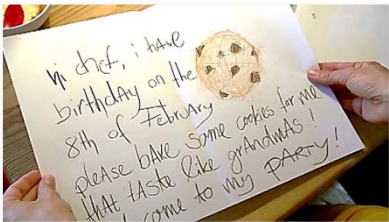 hi chef, i have
birthday on the
8th of February
please bake some cookies for me
that taste like grandmas!
come to my party!